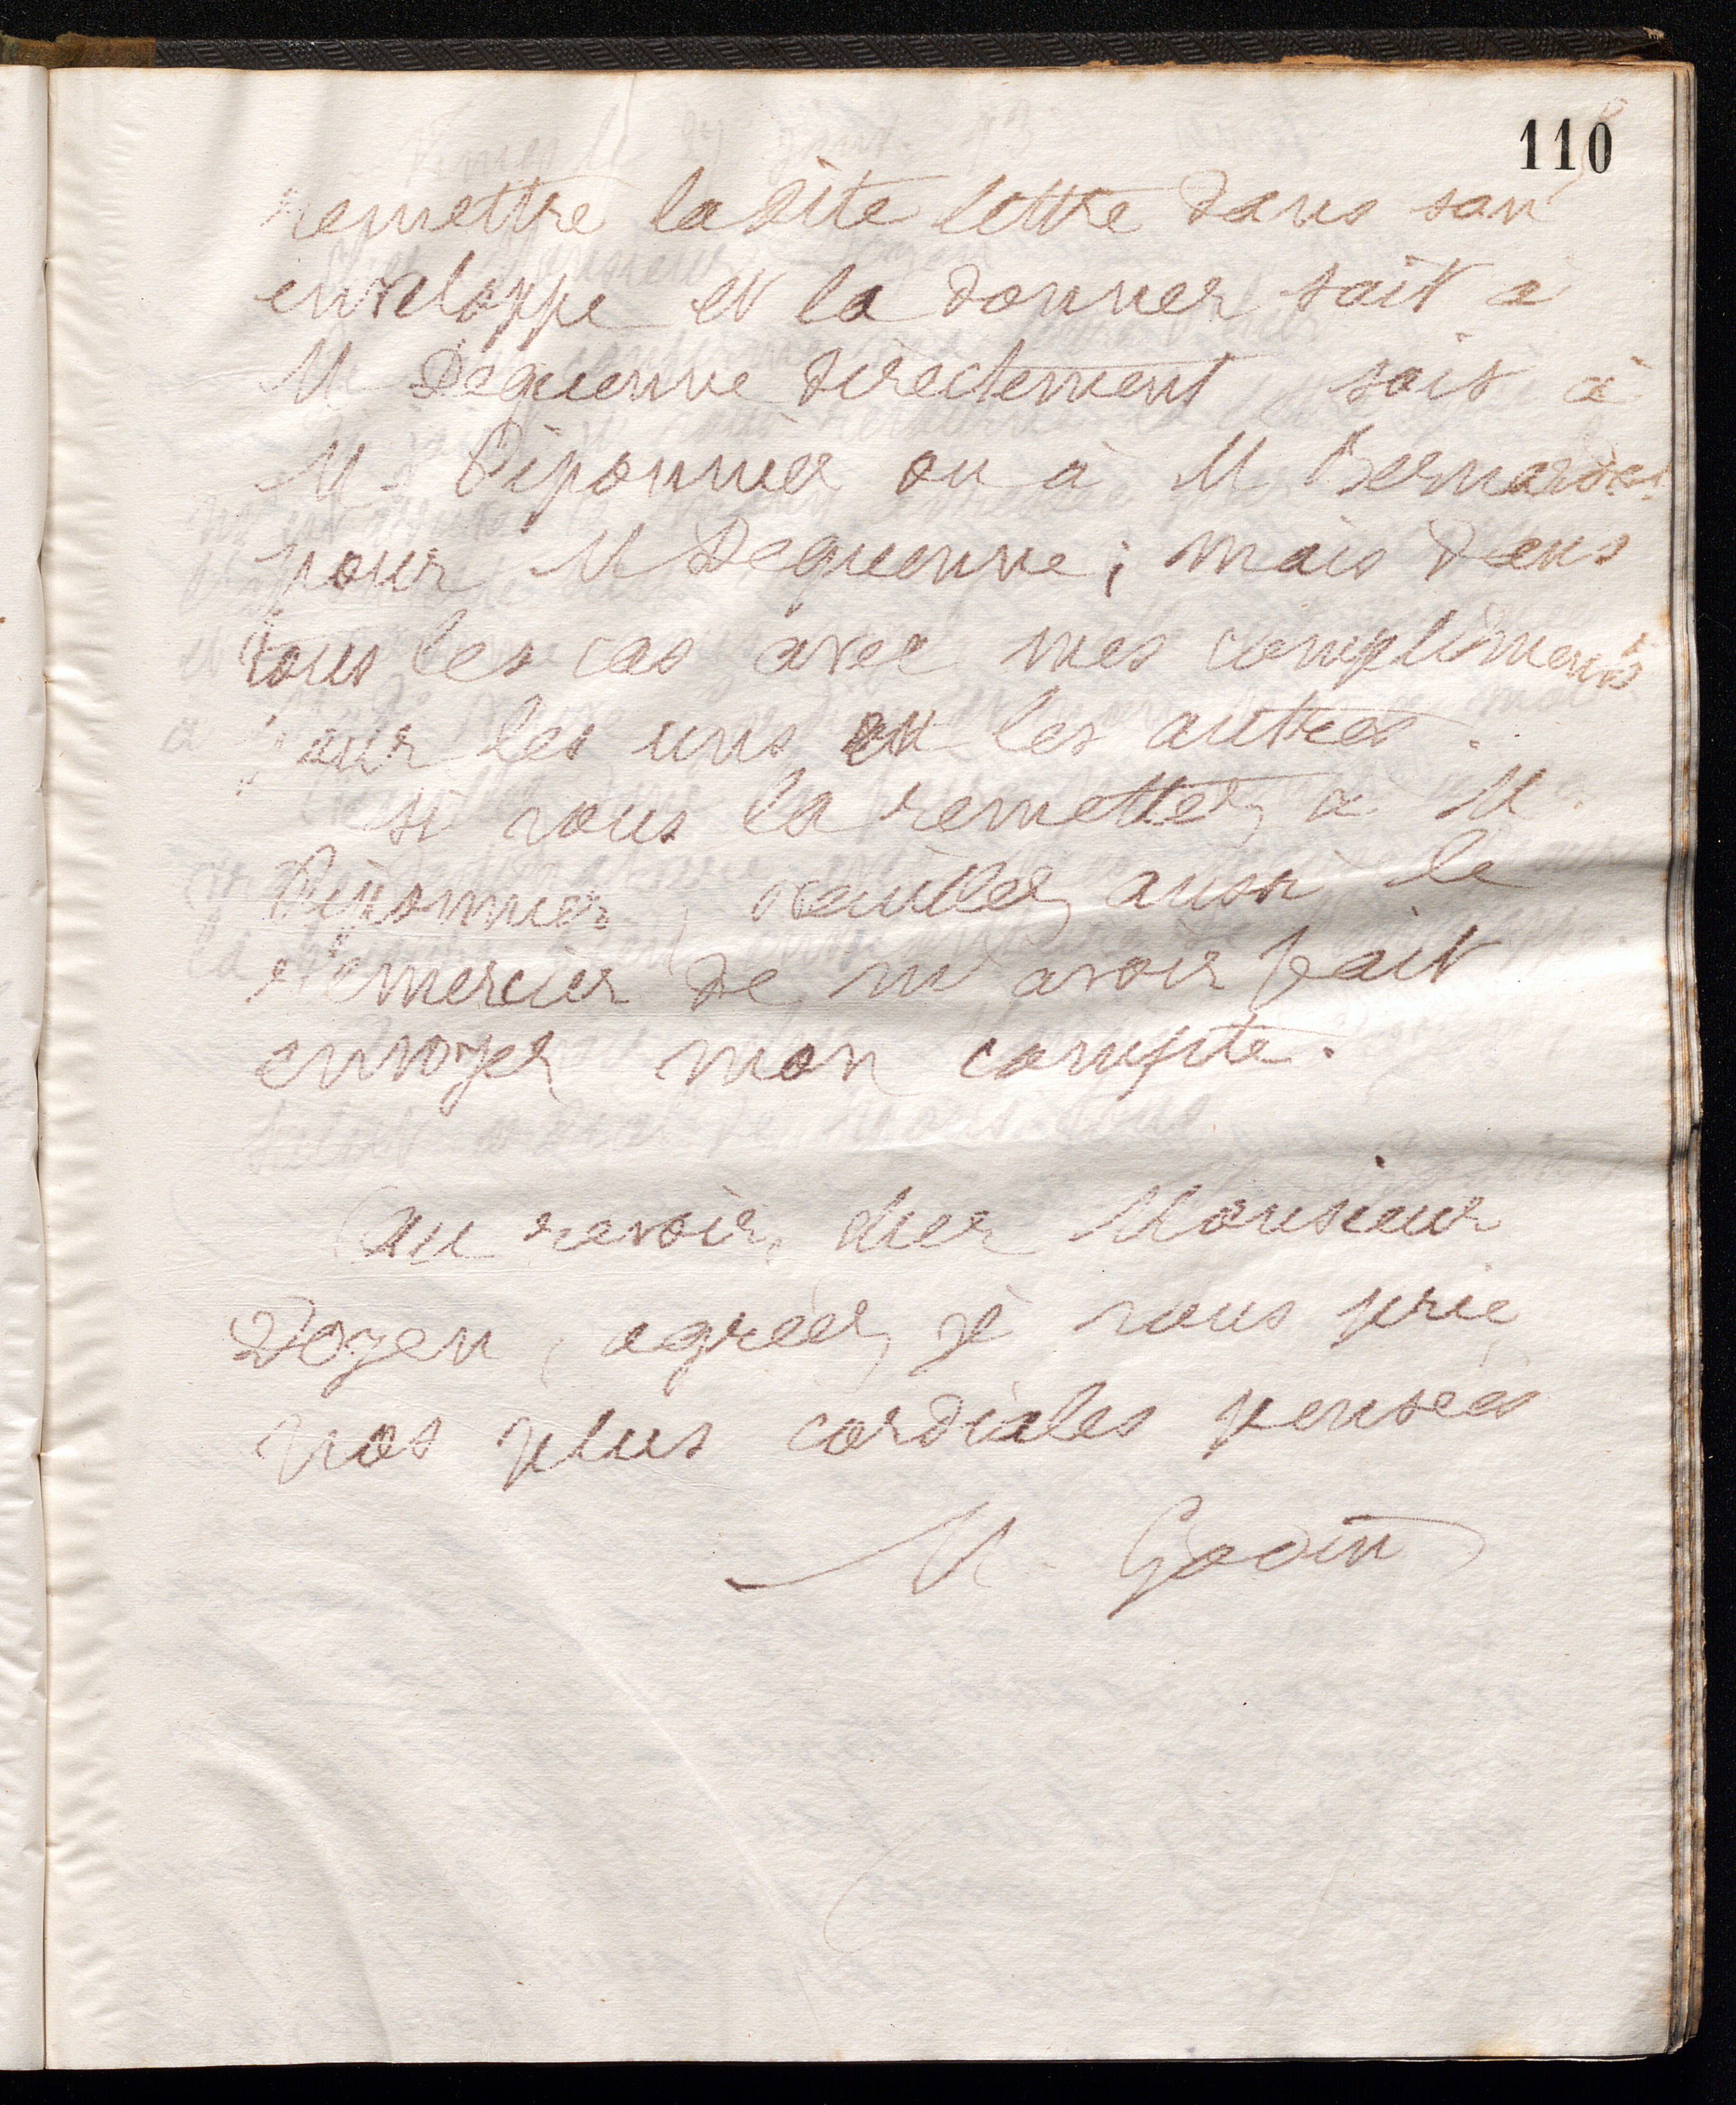 110
remettre ladite lettre dans son
enveloppe et la donner soit à
M Dequenne directement soit à
M. Piponnier ou à M Bernardot
pour M Dequenne ; mais dans
tous les cas avec mes compliments
pour les uns et les autres.
si vous la remettez à M.
Piponnier, veuillez aussi le
remercier de m'avoir fait
envoyer mon compte.
Au revoir, cher Monsieur
Doyen, agréez je vous prie
nos plus cordiales pensées
M. Godin